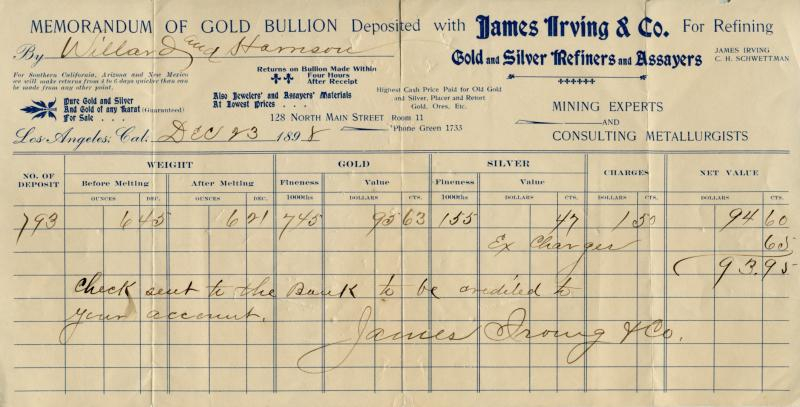 MEMORANDUM OF GOLD BULLION Deposited with James Irving & Co. For Refining
By Willard and Harrison
Gold and Silver Refiners and Assayers
JAMES IRVING
C. H. SCHWETTMAN
For Southern California, Arizona and New Mexico
we will make returns from 4 to 6 days quicker than can
be made from any other point.
Returns on Bullion Made Within
Four Hours
After Receipt
Pure Gold and Silver
And Gold of any Karat (Guaranteed)
For Sale . . .
Also Jewelers' and Assayers' Materials
At Lowest Prices . . . .
Highest Cash Price Paid for Old Gold
and Silver, Placer and Retort
Gold, Ores, Etc.
MINING EXPERTS
AND
CONSULTING METALLURGISTS
128 NORTH MAIN STREET Room 11
'Phone Green 1733
Los Angeles, Cal. Dec 23 1898
NO. OF DEPOSIT WEIGHT GOLD SILVER CHARGES NET VALUE
Before Melting After Melting Fineness Value Fineness Value
OUNCES DEC. OUNCES DEC. 1000ths DOLLARS CTS. 1000ths DOLLARS CTS. DOLLARS CTS. DOLLARS CTS.
793 6 45 6 21 745 95 63 155 47 1 50 94 60
Ex Charges 65
93.95
Check sent to the Bank to be credited to
your account.
James Irving & Co.